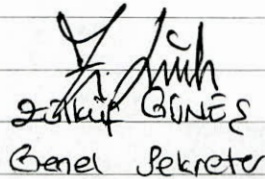 Zülküf GÜNEŞ
Genel Sekreter